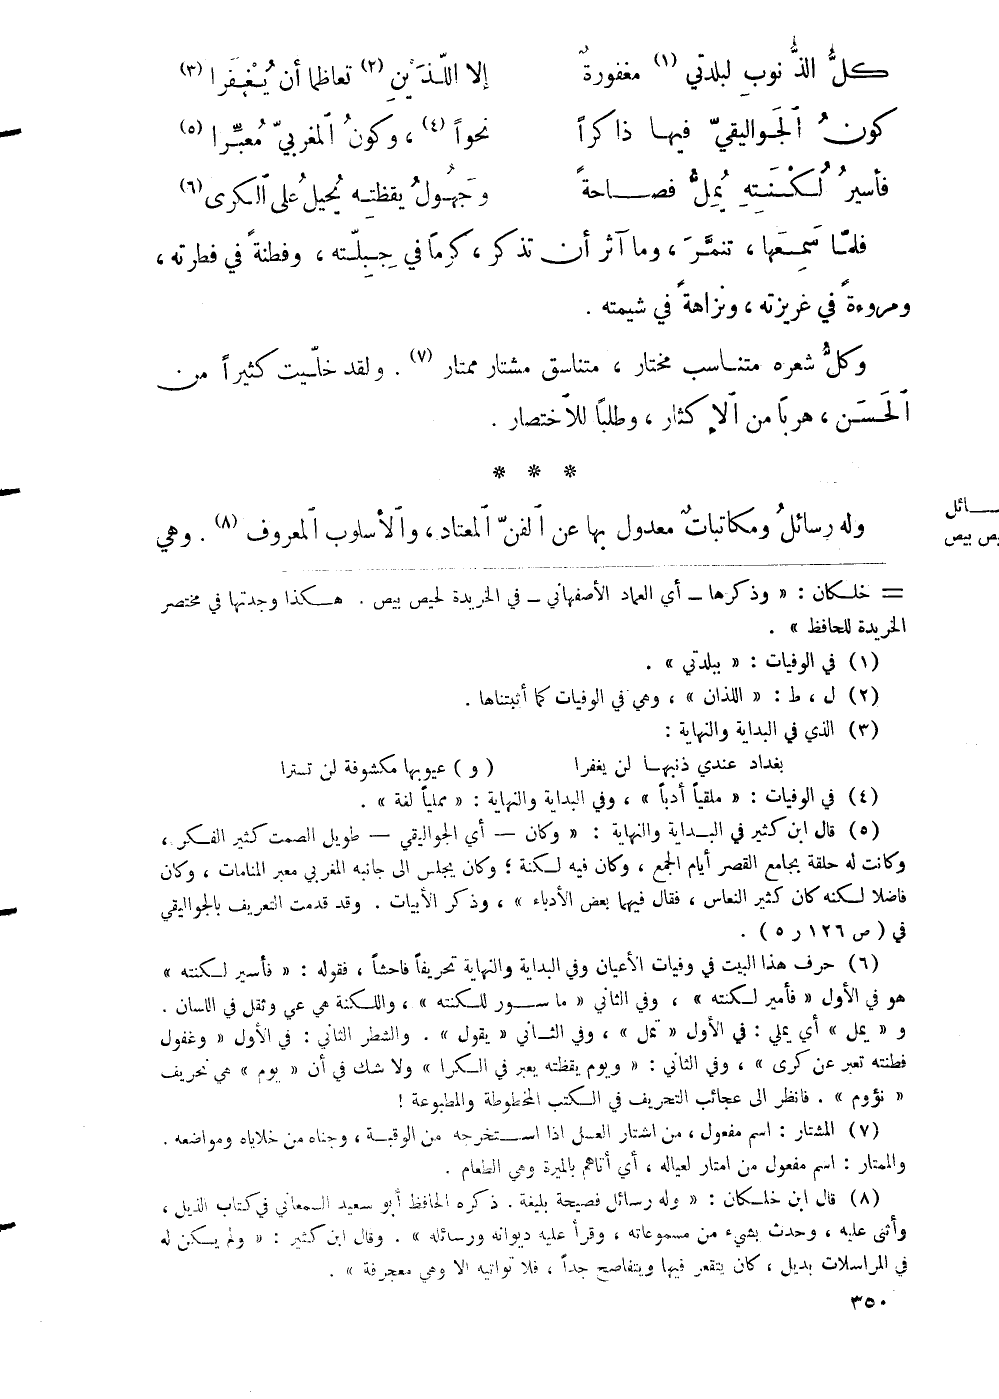 كلُّ الذُّنوبِ لبلدتي (١) مغفورةٌ إلا اللّذَيْنِ (٢) تعاظما أن يُغْفَرا (٣)
كونُ ٱلجَواليقيّ فيها ذاكراً نحواً (٤) ، وكونُ ٱلمغربيّ مُعبِّرا (٥)
فأسيرُ لُكْنَتِهِ يُمِلُّ فصاحةً وجَهُولُ يقظتِه يُحيلُ على ٱلكرى (٦)
فلمّا سَمِعَها ، تنمَّرَ ، وما آثر أن تذكر ، كرمًا في جِبِلّته ، وفطنةً في فطرته ،
ومروءةً في غريزته ، ونزاهةً في شيمته .
وكلُّ شعره متناسب مختار ، متناسق مشتار ممتار (٧) . ولقد خلّيت كثيراً من
ٱلحَسَن ، هربًا من ٱلإكثار ، وطلبًا للٱختصار .
* * *
ـائل
يص بيص
وله رسائلُ ومكاتباتٌ معدول بها عن ٱلفنّ ٱلمعتاد ، وٱلأسلوب ٱلمعروف (٨) . وهي
= خلكان : « وذكرها ــ أي العماد الأصفهاني ــ في الخريدة لحيص بيص . هكذا وجدتها في مختصر
الخريدة للحافظ » .
(١) في الوفيات : « ببلدتي » .
(٢) ل ، ط : « اللذان » ، وهي في الوفيات كما أثبتناها .
(٣) الذي في البداية والنهاية :
بغداد عندي ذنبها لن يغفرا ( و ) عيوبها مكشوفة لن تسترا
(٤) في الوفيات : « ملقياً أدباً » ، وفي البداية والنهاية : « مملياً لغة » .
(٥) قال ابن كثير في البداية والنهاية : « وكان — أي الجواليقي — طويل الصمت كثير الفكر ،
وكانت له حلقة بجامع القصر أيام الجمع ، وكان فيه لكنة ؛ وكان يجلس الى جانبه المغربي معبر المنامات ، وكان
فاضلا لكنه كان كثير النعاس ، فقال فيهما بعض الأدباء » ، وذكر الأبيات . وقد قدمت التعريف بالجواليقي
في ( ص ١٢٦ ر ٥ ) .
(٦) حرف هذا البيت في وفيات الأعيان وفي البداية والنهاية تحريفاً فاحشاً ، فقوله : « فأسير لكنته »
هو في الأول « فأمير لكنته » ، وفي الثاني « ما سور للكنته » ، واللكنة هي عي وثقل في اللسان .
و « يمل » أي يملي : في الأول « تمل » ، وفي الثاني « يقول » . والشطر الثاني : في الأول « وغفول
فطنته تعبر عن كرى » ، وفي الثاني : « ويوم يقظته يعبر في الكرا » ولا شك في أن « يوم » هي تحريف
« نؤوم » . فانظر الى عجائب التحريف في الكتب المخطوطة والمطبوعة !
(٧) المشتار : اسم مفعول ، من اشتار العسل اذا استخرجه من الوقبة ، وجناه من خلاياه ومواضعه .
والممتار : اسم مفعول من امتار لعياله ، أي أتاهم بالميرة وهي الطعام .
(٨) قال ابن خلكان : « وله رسائل فصيحة بليغة . ذكره الحافظ أبو سعيد السمعاني في كتاب الذيل ،
وأثنى عليه ، وحدث بشيء من مسموعاته ، وقرأ عليه ديوانه ورسائله » . وقال ابن كثير : « ولم يكن له
في المراسلات بديل ، كان يتقعر فيها ويتفاصح جداً ، فلا تواتيه الا وهي معجرفة » .
٣٥٠